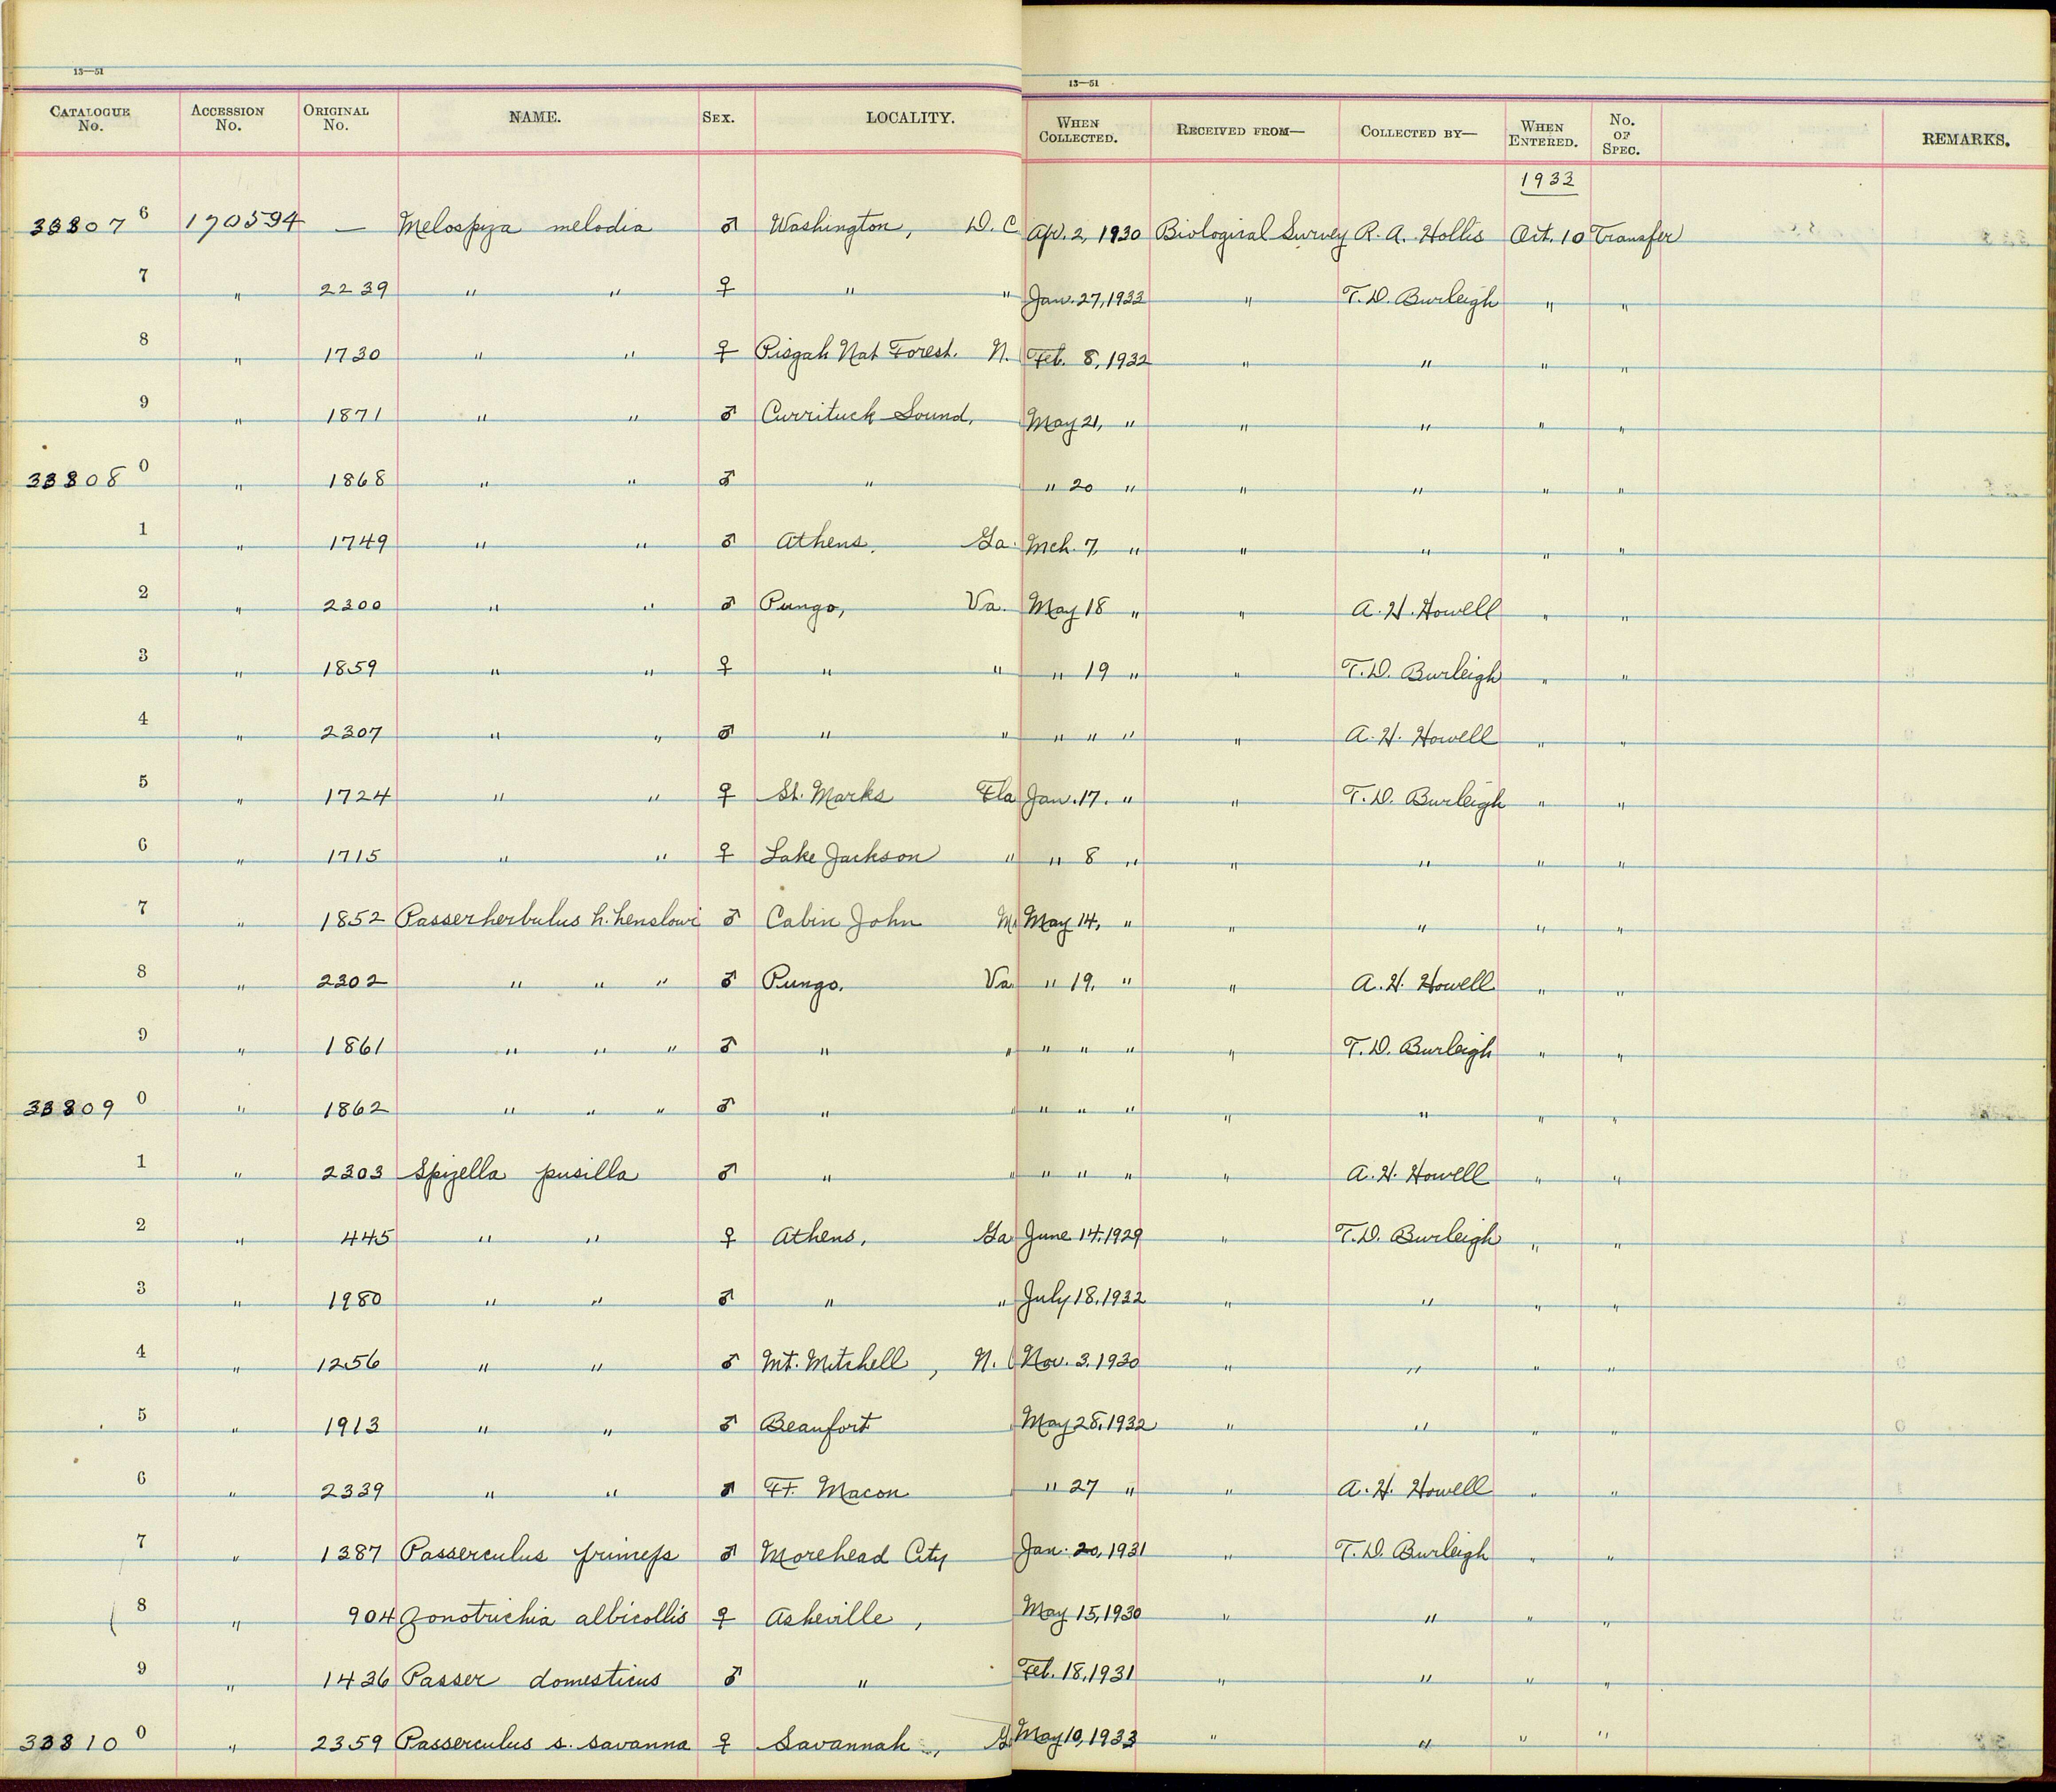 13—51
13—51
CATALOGUE No. ACCESSION No. ORIGINAL No. NAME. SEX. LOCALITY. WHEN COLLECTED. RECEIVED FROM— COLLECTED BY— WHEN ENTERED. No. OF SPEC. REMARKS.
1933
33807 6 170594 — Melospiza melodia ♂ Washington, D. C Apr. 2, 1930 Biological Survey R. A. Hollis Oct. 10 Transfer
7 " 2239 " " ♀ " " Jan. 27, 1933 " T. D. Burleigh " "
8 " 1730 " " ♀ Pisgah Nat Forest. N. Feb. 8, 1932 " " " "
9 " 1871 " " ♂ Currituck Sound, May 21, " " " " "
33808 0 " 1868 " " ♂ " " 20 " " " " "
1 " 1749 " " ♂ Athens, Ga. Mch. 7, " " " " "
2 " 2300 " " ♂ Pungo, Va. May 18 " " A. H. Howell " "
3 " 1859 " " ♀ " " " 19 " " T. D. Burleigh " "
4 " 2307 " " ♂ " " " " " " A. H. Howell " "
5 " 1724 " " ♀ St. Marks Fla Jan. 17, " " T. D. Burleigh " "
6 " 1715 " " ♀ Lake Jackson " " 8 " " " " "
7 " 1852 Passerherbulus h. henslowi ♂ Cabin John M May 14, " " " " "
8 " 2302 " " " ♂ Pungo, Va " 19, " " A. H. Howell " "
9 " 1861 " " " ♂ " " " " " " T. D. Burleigh " "
33809 0 " 1862 " " " ♂ " " " " " " " " "
1 " 2303 Spizella pusilla ♂ " " " " " " A. H. Howell " "
2 " 445 " " ♀ Athens, Ga June 14, 1929 " T. D. Burleigh " "
3 " 1980 " " ♂ " " July 18, 1932 " " " "
4 " 1256 " " ♂ Mt. Mitchell, N. C Nov. 3, 1930 " " " "
5 " 1913 " " ♂ Beaufort May 28, 1932 " " " "
6 " 2339 " " ♂ Ft. Macon " 27 " " A. H. Howell " "
7 " 1387 Passerculus princeps ♂ Morehead City Jan. 20, 1931 " T. D. Burleigh " "
8 " 904 Zonotrichia albicollis ♀ Asheville, May 15, 1930 " " " "
9 " 1436 Passer domesticus ♂ " Feb. 18, 1931 " " " "
33810 0 " 2359 Passerculus s. savanna ♀ Savannah, G May 10, 1933 " " " "